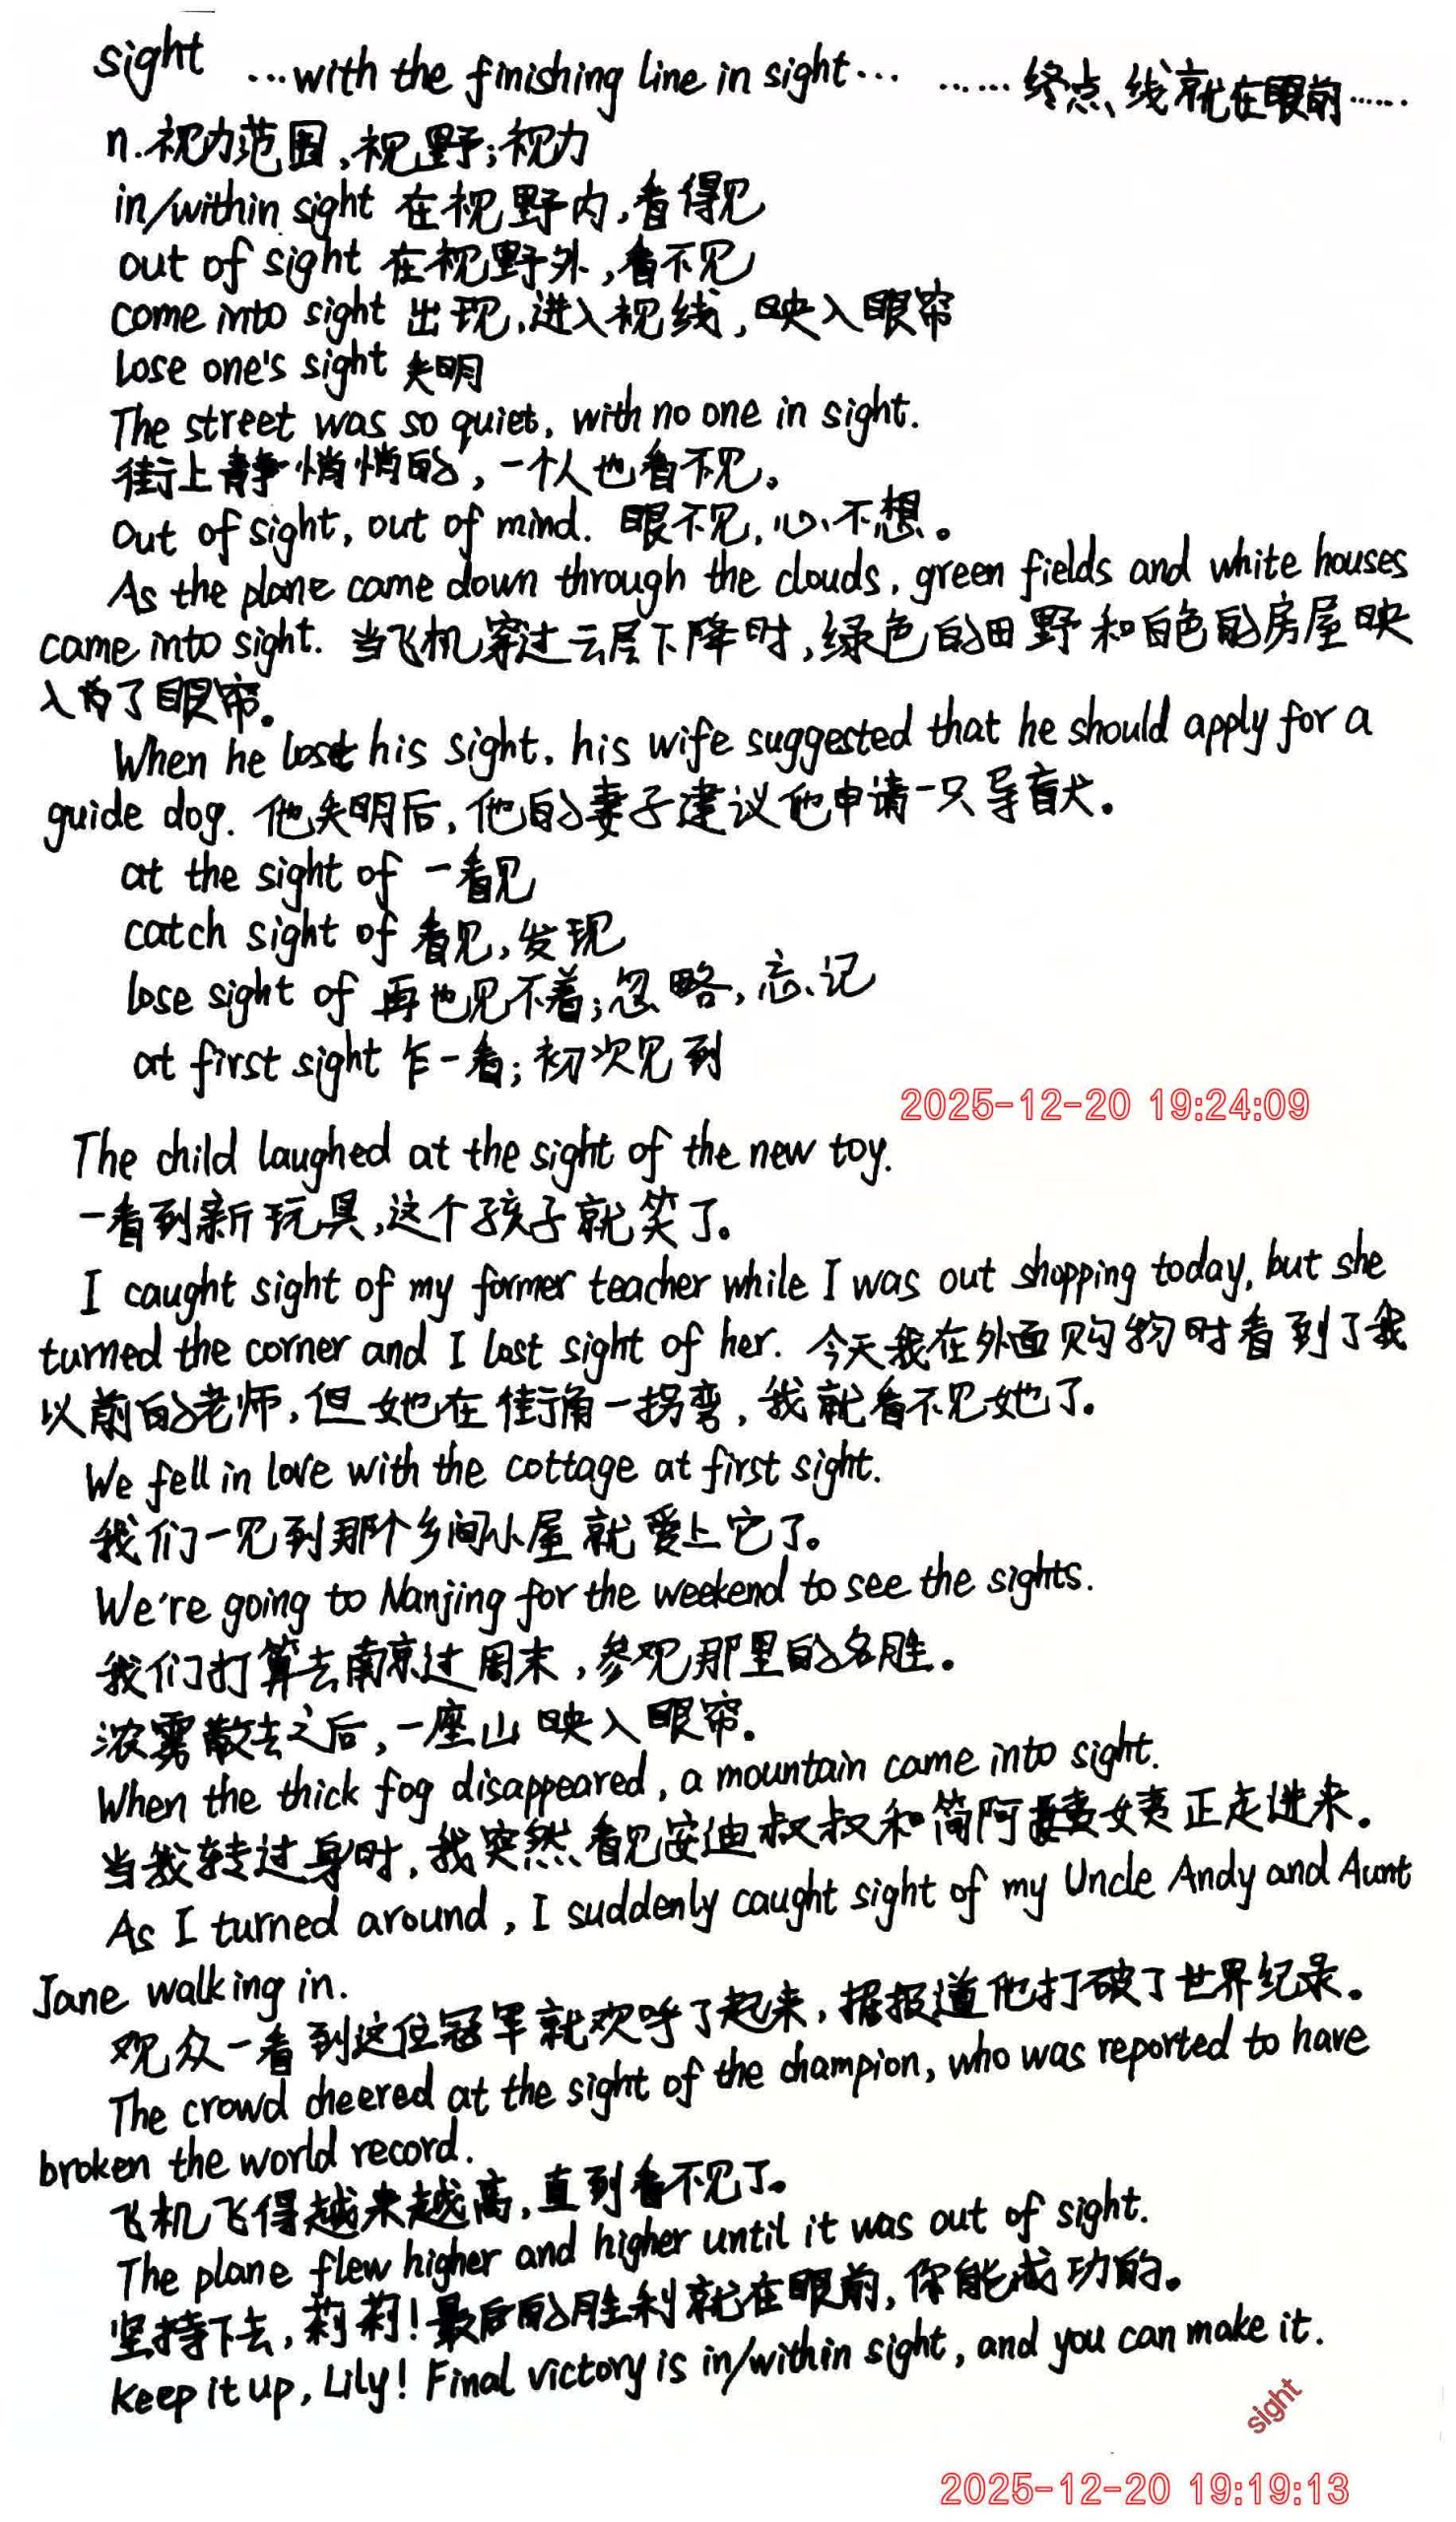 sight ...with the finishing line in sight... ……终点线就在眼前……
n.视力范围,视野;视力
in/within sight 在视野内,看得见
out of sight 在视野外,看不见
come into sight 出现,进入视线,映入眼帘
lose one's sight 失明
The street was so quiet, with no one in sight.
街上静悄悄的,一个人也看不见。
Out of sight, out of mind. 眼不见,心不想。
As the plane came down through the clouds, green fields and white houses
came into sight. 当飞机穿过云层下降时,绿色的田野和白色的房屋映
入了眼帘。
When he lost his sight, his wife suggested that he should apply for a
guide dog. 他失明后,他的妻子建议他申请一只导盲犬。
at the sight of 一看见
catch sight of 看见,发现
lose sight of 再也见不着;忽略,忘记
at first sight 乍一看;初次见到
2025-12-20 19:24:09
The child laughed at the sight of the new toy.
一看到新玩具,这个孩子就笑了。
I caught sight of my former teacher while I was out shopping today, but she
turned the corner and I lost sight of her. 今天我在外面购物时看到了我
以前的老师,但她在街角一拐弯,我就看不见她了。
We fell in love with the cottage at first sight.
我们一见到那个乡间小屋就爱上它了。
We're going to Nanjing for the weekend to see the sights.
我们打算去南京过周末,参观那里的名胜。
浓雾散去之后,一座山映入眼帘。
When the thick fog disappeared, a mountain came into sight.
当我转过身时,我突然看见安迪叔叔和简阿姨正走进来。
As I turned around, I suddenly caught sight of my Uncle Andy and Aunt
Jane walking in.
观众一看到这位冠军就欢呼了起来,据报道他打破了世界纪录。
The crowd cheered at the sight of the champion, who was reported to have
broken the world record.
飞机飞得越来越高,直到看不见了。
The plane flew higher and higher until it was out of sight.
坚持下去,莉莉!最后的胜利就在眼前,你能成功的。
Keep it up, Lily! Final victory is in/within sight, and you can make it.
sight
2025-12-20 19:19:13